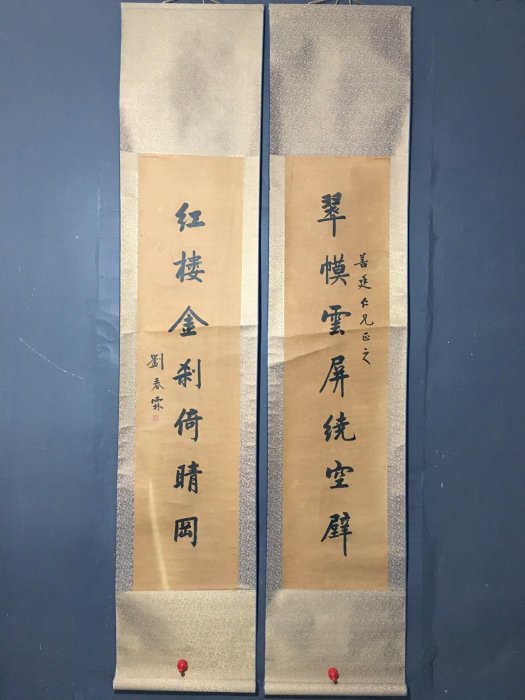 翠幙雲屏绕空壁
善延仁兄正之
红楼金刹倚晴岡
劉春霖